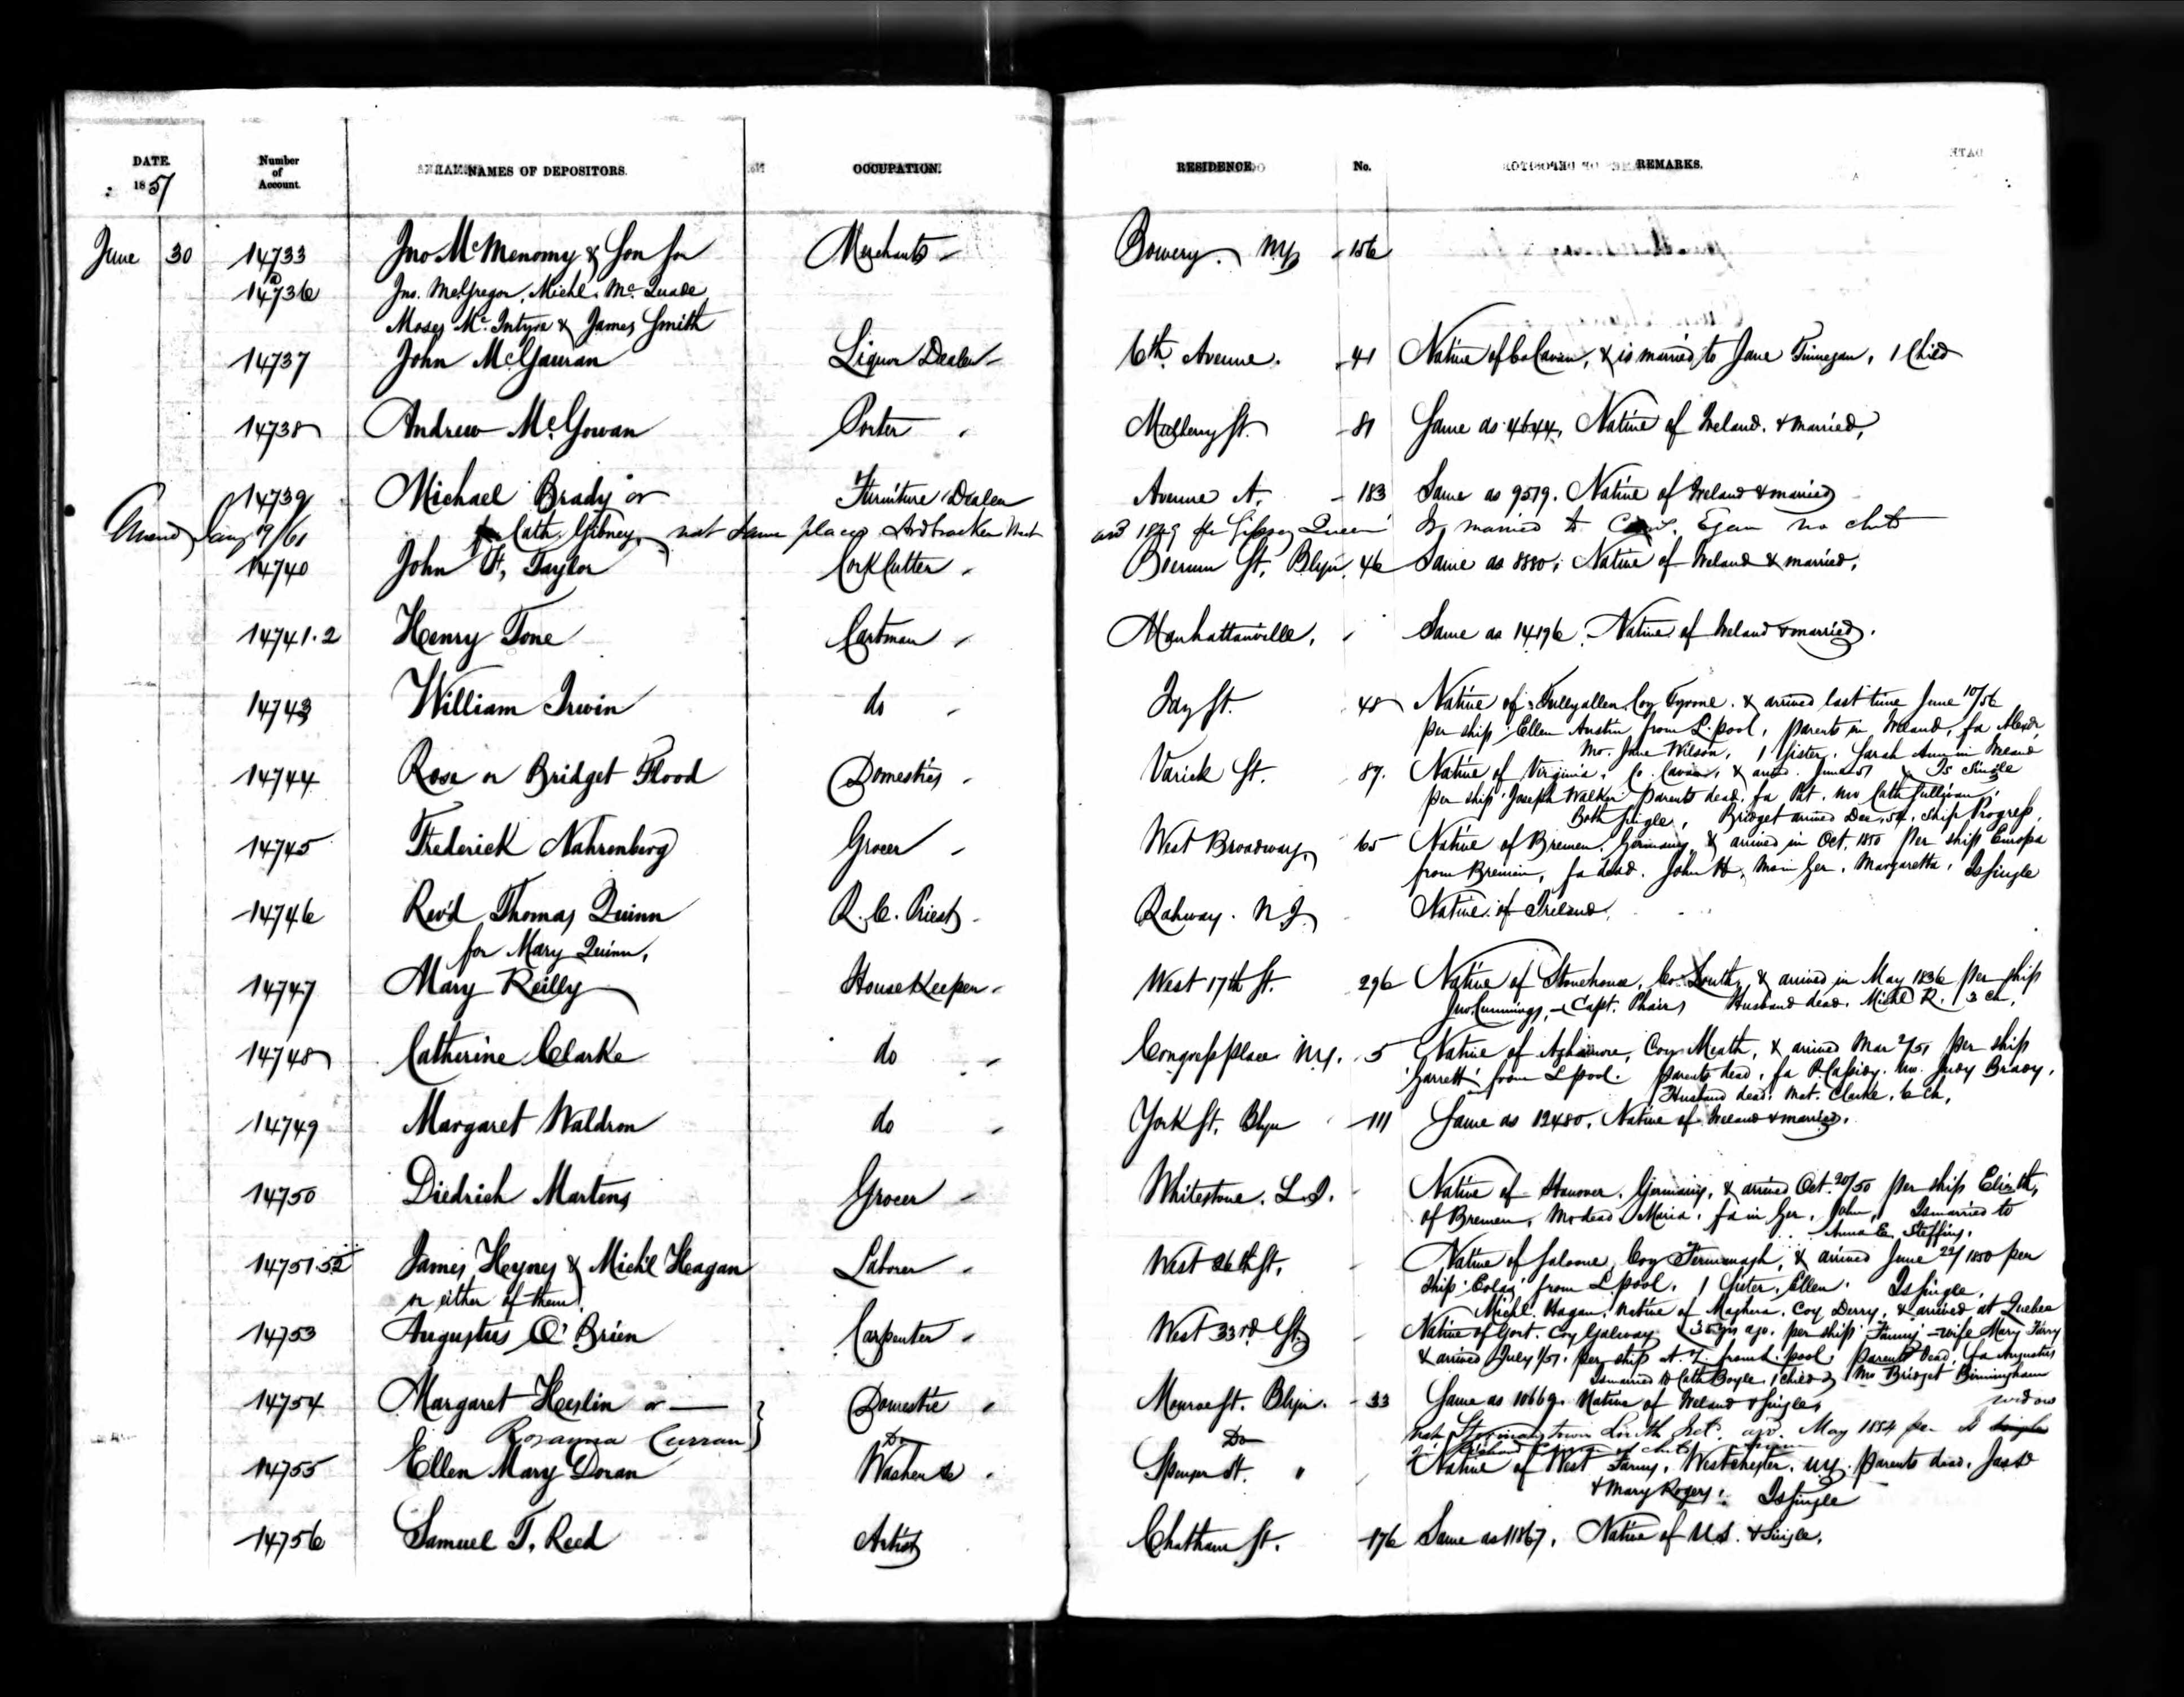 DATE. Number of Account. NAMES OF DEPOSITORS. OCCUPATION. RESIDENCE. No. REMARKS.
1857
June 30 14733 Jno McMenomy & Son for Merchants Bowery. NY 156
to 14736 Jno. McGregor, Michl. McQuade
Moses McIntyre & James Smith
14737 John McGauran Liquor Dealer 6th Avenue. 41 Native of Co Cavan, & is married to Jane Finnegan, 1 Child
14738 Andrew McGowan Porter Mulberry St. 81 Same as 4644, Native of Ireland. & married,
14739 Michael Brady or Furniture Dealer Avenue A. 183 Same as 9519. Native of Ireland & married
Amend Jany 19/61 Cath. Gibney, nat same place Ardbracken Meath arr 1849 Gipsey Queen Is married to Egan no chil
14740 John Taylor Cork Cutter Boerum St. Blyn. 46 Same as 8880, Native of Ireland & married.
14741.2 Henry Tone Cartman Manhattanville, Same as 14196. Native of Ireland & married.
14743 William Irwin do Jay St. 48 Native of Tullyallen, Coy Tyrone. & arrived last time June 10/56
per ship Ellen Austin from L.pool, parents in Ireland, fa Alexr,
Mo. Jane Wilson, 1 Sister, Sarah Ann in Ireland
14744 Rosa or Bridget Flood Domestics Varick St. 89. Native of Virginia, Co. Cavan, & arrd. June 51 Is Single
per ship Joseph Walker parents dead. fa Pat. mo Cath
Both Single, Bridget arrived Dec. 54, Ship Progress,
14745 Frederick Nahrenberg Grocer West Broadway, 65 Native of Bremen, Germany, & arrived in Oct. 1850 per ship Europa
from Bremen, fa dead. John H, Mo in Ger, Margaretta, Is single
14746 Rev'd Thomas Quinn R. C. Priest Rahway. N J. Native of Ireland,
for Mary Quinn,
14747 Mary Reilly House Keeper West 17th St. 296 Native of Stonehouse, Co. Louth, & arrived in May 1836 per ship
Jno. Cummings, Capt. Phair, Husband dead. Michl R. 3 ch,
14748 Catherine Clarke do Congress place N.Y. 5 Native of Coy Meath, & arrived Mar 2/51 per ship
Garrett from L pool. parents dead, fa P. Cassidy. mo. Judy Brady,
Husband dead. Mat. Clarke, 6 ch,
14749 Margaret Waldron do York St. Blyn 111 Same as 12480, Native of Ireland & married.
14750 Diedrich Martens Grocer Whitestone. L.I. Native of Hanover, Germany, & arrived Oct. 20/50 per ship Elizath,
of Bremen, Mo dead Maria, fa in Ger, John, Is married to
Anna E. Steffins,
14751.52 James Heyney & Mich'l Heagan Laborer West 26th St. Native of Coy Fermanagh, & arrived June 22/1850 per
or either of them. ship from L pool, 1 Sister, Ellen, Is single,
Michl. Hagan, native of Maghera, Coy Derry, & arrived at Quebec
14753 Augustus O'Brien Carpenter West 33rd St. Native of Gort. Coy Galway 35 yrs ago. per ship Fanny - wife Mary
& arrived July 1/51, per ship from L.pool, parents dead, fa Augustus
Is married to Cath Boyle, 1 child Mo Bridget Birmingham
14754 Margaret Heslin or Domestic Monroe St. Blyn. 33 Same as 10669. Native of Ireland & Single, widow
Rosanna Curran Do Do nat town Louth arr. May 1854 per Is single
14755 Ellen Mary Doran Washer &c Spenser St. " Native of West Farms, Westchester, NY. parents dead,
& Mary Rogers. Is single
14756 Samuel T. Reed Artist Chatham St. 176 Same as 11867, Native of U.S. & Single,